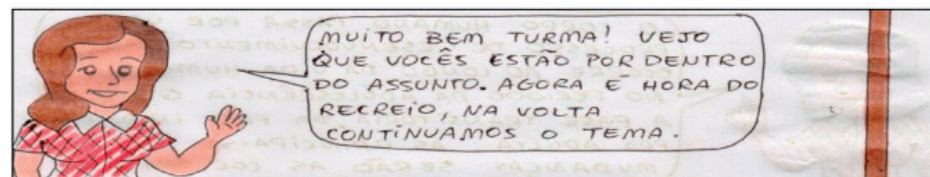 MUITO BEM TURMA! VEJO
QUE VOCÊS ESTÃO POR DENTRO
DO ASSUNTO. AGORA É HORA DO
RECREIO, NA VOLTA
CONTINUAMOS O TEMA.